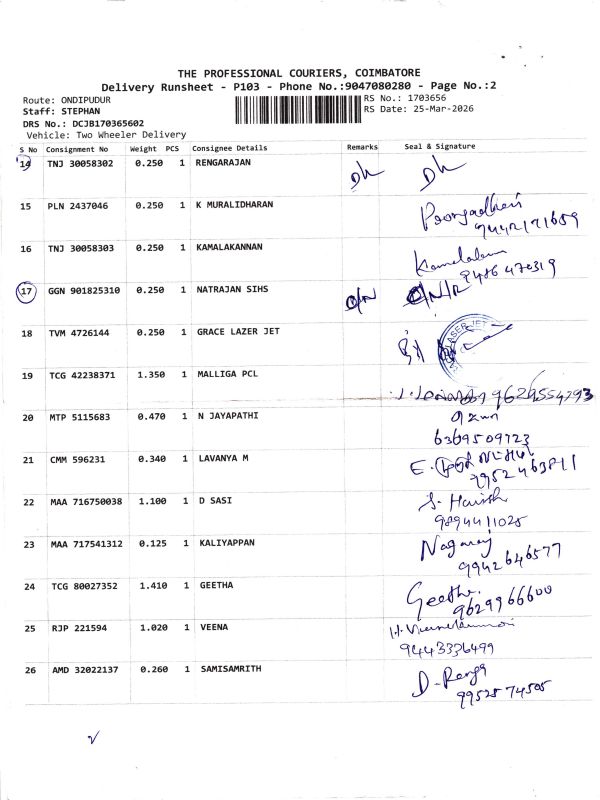 THE PROFESSIONAL COURIERS, COIMBATORE
Delivery Runsheet - P103 - Phone No.:9047080280 - Page No.:2
Route: ONDIPUDUR
RS No.: 1703656
Staff: STEPHAN
RS Date: 25-Mar-2026
DRS No.: DCJB170365602
Vehicle: Two Wheeler Delivery
S No Consignment No Weight PCS Consignee Details Remarks Seal & Signature
14 TNJ 30058302 0.250 1 RENGARAJAN DL DL
15 PLN 2437046 0.250 1 K MURALIDHARAN
9442171659
16 TNJ 30058303 0.250 1 KAMALAKANNAN
9486470319
17 GGN 901825310 0.250 1 NATRAJAN SIHS
18 TVM 4726144 0.250 1 GRACE LAZER JET
LASER JET
19 TCG 42238371 1.350 1 MALLIGA PCL
9629554293
20 MTP 5115683 0.470 1 N JAYAPATHI
6369509723
21 CMM 596231 0.340 1 LAVANYA M
22 MAA 716750038 1.100 1 D SASI S. Harish
9894411025
23 MAA 717541312 0.125 1 KALIYAPPAN Nagaraj
9942646577
24 TCG 80027352 1.410 1 GEETHA Geetha.
9629966600
25 RJP 221594 1.020 1 VEENA
9443336499
26 AMD 32022137 0.260 1 SAMISAMRITH D. Renga
9952574505